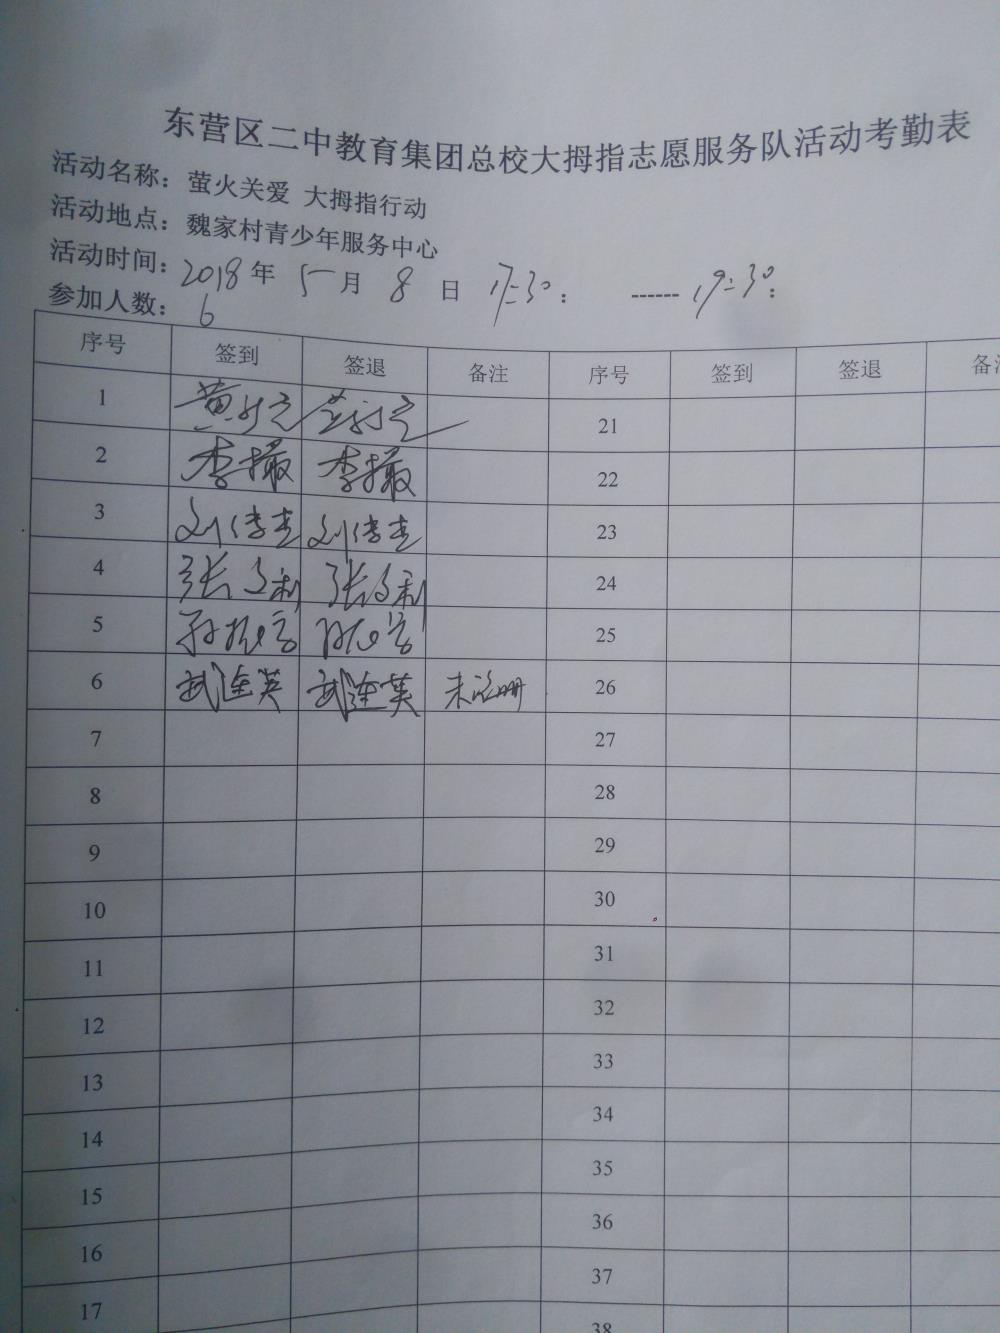 东营区二中教育集团总校大拇指志愿服务队活动考勤表
活动名称：萤火关爱 大拇指行动
活动地点：魏家村青少年服务中心
活动时间：2018 年 5 月 8 日 17:30： ------ 19:30：
参加人数：6
序号 签到 签退 备注 序号 签到 签退 备注
1 21
2 李撮 李撮 22
3 刘传杰 刘传杰 23
4 张文利 张文利 24
5 25
6 武连英 武连英 26
7 27
8 28
9 29
10 30
11 31
12 32
13 33
14 34
15 35
16 36
17 37
38